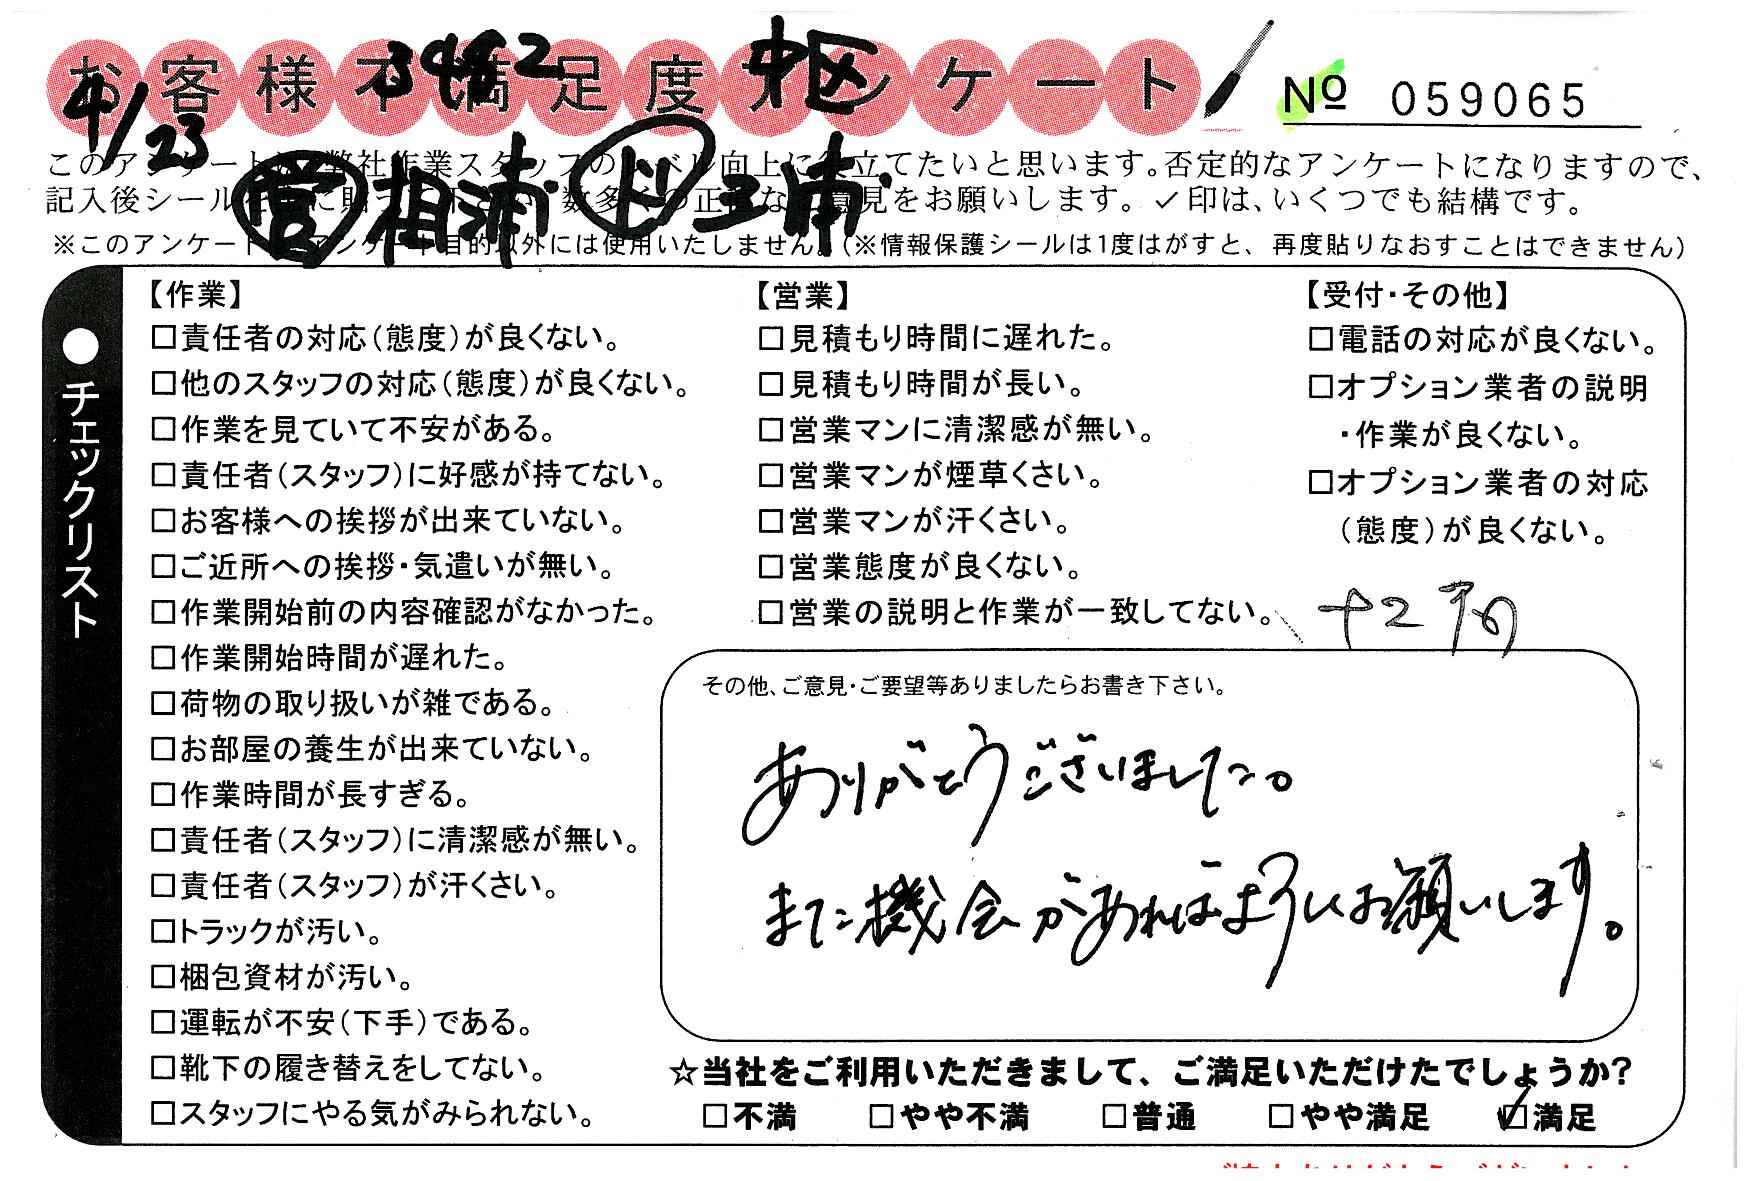 お客様不満足度アンケート
No 059065
3482 中区
4/23
営 相浦 ド 三浦
このアンケートは、弊社作業スタッフのレベル向上に役立てたいと思います。否定的なアンケートになりますので、
記入後シールを上に貼って下さい。数多くの正直な意見をお願いします。✓印は、いくつでも結構です。
※このアンケートは、アンケート目的以外には使用いたしません。(※情報保護シールは1度はがすと、再度貼りなおすことはできません)
●チェックリスト
【作業】
□責任者の対応(態度)が良くない。
□他のスタッフの対応(態度)が良くない。
□作業を見ていて不安がある。
□責任者(スタッフ)に好感が持てない。
□お客様への挨拶が出来ていない。
□ご近所への挨拶・気遣いが無い。
□作業開始前の内容確認がなかった。
□作業開始時間が遅れた。
□荷物の取り扱いが雑である。
□お部屋の養生が出来ていない。
□作業時間が長すぎる。
□責任者(スタッフ)に清潔感が無い。
□責任者(スタッフ)が汗くさい。
□トラックが汚い。
□梱包資材が汚い。
□運転が不安(下手)である。
□靴下の履き替えをしてない。
□スタッフにやる気がみられない。
【営業】
□見積もり時間に遅れた。
□見積もり時間が長い。
□営業マンに清潔感が無い。
□営業マンが煙草くさい。
□営業マンが汗くさい。
□営業態度が良くない。
□営業の説明と作業が一致してない。
【受付・その他】
□電話の対応が良くない。
□オプション業者の説明
・作業が良くない。
□オプション業者の対応
(態度)が良くない。
その他、ご意見・ご要望等ありましたらお書き下さい。
ありがとうございました。
また機会があればよろしくお願いします。
☆当社をご利用いただきまして、ご満足いただけたでしょうか?
□不満 □やや不満 □普通 □やや満足 ☑満足